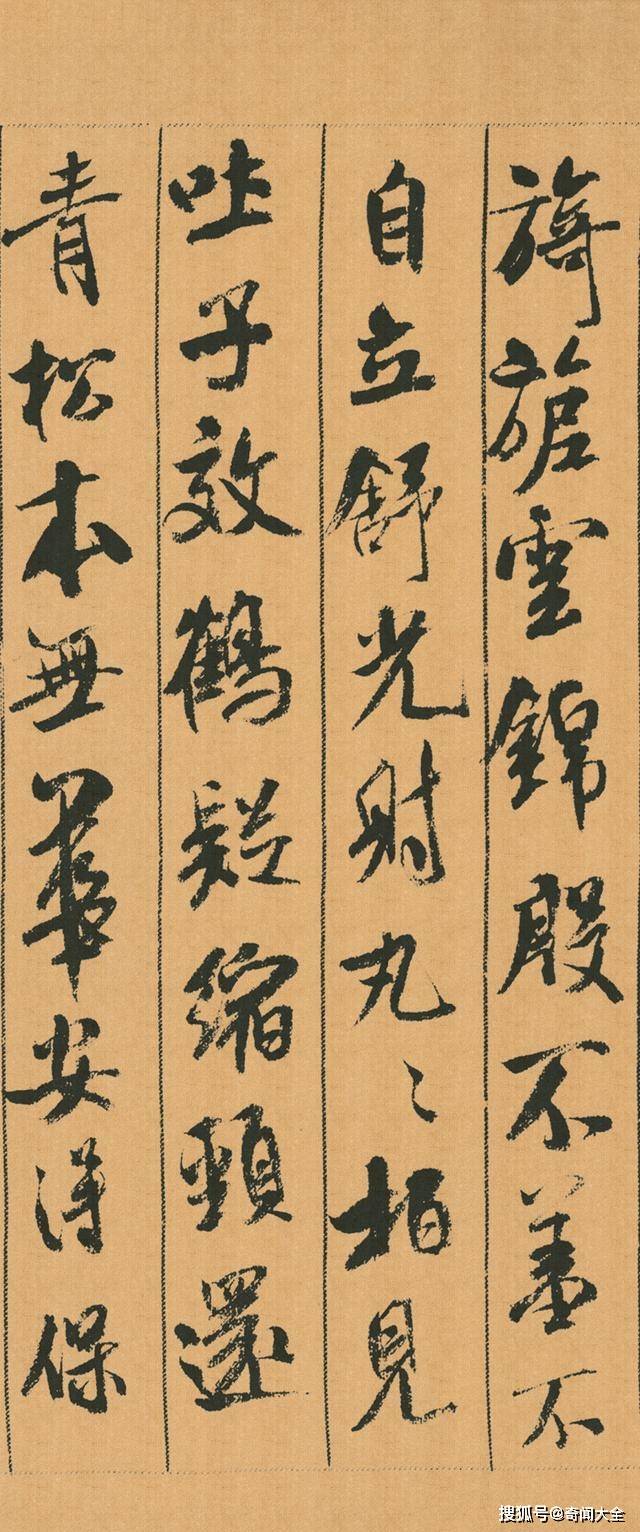 旖旎雲錦殷不羞不
自立舒光射丸〻柏見
吐子效鶴疑縮頸還
青松本無華安得保
搜狐号@奇闻大全